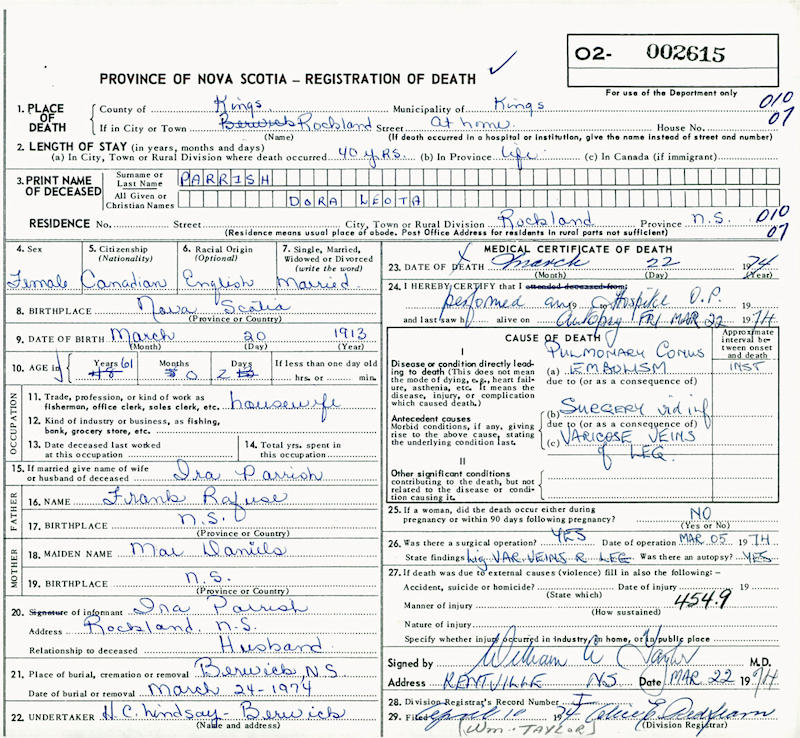 O2- 002615
PROVINCE OF NOVA SCOTIA – REGISTRATION OF DEATH
For use of the Department only
1. PLACE OF DEATH
County of Kings Municipality of Kings 010
If in City or Town Berwick Rockland Street At home. House No. 07
(Name) (If death occurred in a hospital or institution, give the name instead of street and number)
2. LENGTH OF STAY (in years, months and days)
(a) In City, Town or Rural Division where death occurred 40 yrs. (b) In Province life (c) In Canada (if immigrant)
3. PRINT NAME OF DECEASED
Surname or Last Name PARRISH
All Given or Christian Names DORA LEOTA
RESIDENCE No. Street City, Town or Rural Division Rockland Province N.S. 010
(Residence means usual place of abode. Post Office Address for residents in rural parts not sufficient) 07
4. Sex
Female
5. Citizenship
(Nationality)
Canadian
6. Racial Origin
(Optional)
English
7. Single, Married, Widowed or Divorced
(write the word)
Married
8. BIRTHPLACE Nova Scotia
(Province or Country)
9. DATE OF BIRTH March 20 1913
(Month) (Day) (Year)
10. AGE in
Years 61
48
Months
0
Days
2
If less than one day old
hrs. or min.
OCCUPATION
11. Trade, profession, or kind of work as fisherman, office clerk, sales clerk, etc. housewife
12. Kind of industry or business, as fishing, bank, grocery store, etc.
13. Date deceased last worked at this occupation
14. Total yrs. spent in this occupation
15. If married give name of wife or husband of deceased Ira Parrish
FATHER
16. NAME Frank Rafuse
17. BIRTHPLACE N.S.
(Province or Country)
MOTHER
18. MAIDEN NAME Mae Daniels
19. BIRTHPLACE N.S.
(Province or Country)
20. Signature of informant Ira Parrish
Address Rockland, N.S.
Relationship to deceased Husband
21. Place of burial, cremation or removal Berwick, N.S
Date of burial or removal March 24-1974
22. UNDERTAKER H.C. Lindsay - Berwick
(Name and address)
MEDICAL CERTIFICATE OF DEATH
23. DATE OF DEATH March 22 1974
(Month) (Day) (Year)
24. I HEREBY CERTIFY that I attended deceased from:
performed an 19 to Hospital O.P. 19
and last saw h alive on Autopsy FRI MAR 22 1974
CAUSE OF DEATH
Approximate interval between onset and death
I
Disease or condition directly leading to death (This does not mean the mode of dying, e.g., heart failure, asthenia, etc. It means the disease, injury, or complication which caused death.)
PULMONARY CONUS
(a) EMBOLISM INST
due to (or as a consequence of)
Antecedent causes
Morbid conditions, if any, giving rise to the above cause, stating the underlying condition last.
(b) SURGERY vid inf
due to (or as a consequence of)
(c) VARICOSE VEINS
of LEG.
II
Other significant conditions contributing to the death, but not related to the disease or condition causing it.
25. If a woman, did the death occur either during pregnancy or within 90 days following pregnancy? NO
(Yes or No)
26. Was there a surgical operation? YES Date of operation MAR 05 1974
State findings Lig VAR. VEINS R LEG Was there an autopsy? YES
27. If death was due to external causes (violence) fill in also the following:–
Accident, suicide or homicide? Date of injury 19
(State which)
Manner of injury 454.9
(How sustained)
Nature of injury
Specify whether injury occurred in industry, in home, or in public place
Signed by William A Taylor M.D.
Address KENTVILLE NS Date MAR 22 1974
28. Division Registrar's Record Number I
29. Filed April 10 1974
(WM. TAYLOR) (Division Registrar)